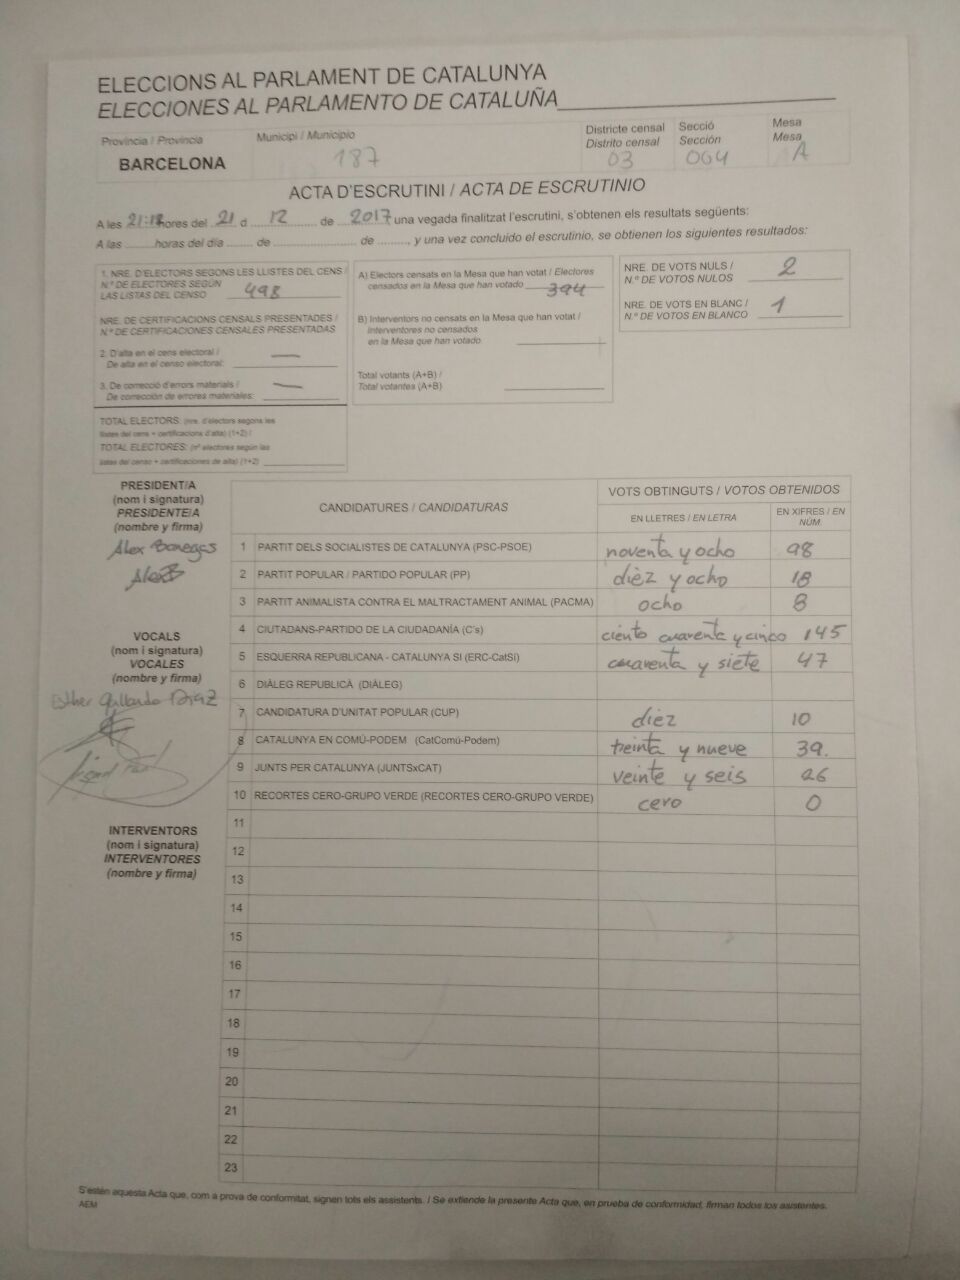 ELECCIONS AL PARLAMENT DE CATALUNYA
ELECCIONES AL PARLAMENTO DE CATALUÑA
Provincia / Provincia
BARCELONA
Municipi / Municipio
187
Districte censal
Distrito censal
03
Secció
Sección
064
Mesa
Mesa
A
ACTA D'ESCRUTINI / ACTA DE ESCRUTINIO
A les 21:18 hores del 21 d 12 de 2017 una vegada finalitzat l'escrutini, s'obtenen els resultats següents:
A las ........ horas del día ....... de ...................... de ........, y una vez concluido el escrutinio, se obtienen los siguientes resultados:
1. NRE. D'ELECTORS SEGONS LES LLISTES DEL CENS /
N.º DE ELECTORES SEGÚN
LAS LISTAS DEL CENSO 498
NRE. DE CERTIFICACIONS CENSALS PRESENTADES /
N.º DE CERTIFICACIONES CENSALES PRESENTADAS
2. D'alta en el cens electoral / —
De alta en el censo electoral:
3. De correcció d'errors materials / —
De corrección de errores materiales:
TOTAL ELECTORS: (nre. d'electors segons les
llistes del cens + certificacions d'alta) (1+2) /
TOTAL ELECTORES: (nº electores según las
listas del censo + certificaciones de alta) (1+2)
A) Electors censats en la Mesa que han votat / Electores
censados en la Mesa que han votado 394
B) Interventors no censats en la Mesa que han votat /
Interventores no censados
en la Mesa que han votado
Total votants (A+B) /
Total votantes (A+B)
NRE. DE VOTS NULS /
N.º DE VOTOS NULOS 2
NRE. DE VOTS EN BLANC /
N.º DE VOTOS EN BLANCO 1
PRESIDENT/A
(nom i signatura)
PRESIDENTE/A
(nombre y firma)
Alex
VOCALS
(nom i signatura)
VOCALES
(nombre y firma)
Esther Gallardo Diaz
INTERVENTORS
(nom i signatura)
INTERVENTORES
(nombre y firma)
CANDIDATURES / CANDIDATURAS
VOTS OBTINGUTS / VOTOS OBTENIDOS
EN LLETRES / EN LETRA
EN XIFRES / EN NÚM.
1 PARTIT DELS SOCIALISTES DE CATALUNYA (PSC-PSOE) noventa y ocho 98
2 PARTIT POPULAR / PARTIDO POPULAR (PP) diez y ocho 18
3 PARTIT ANIMALISTA CONTRA EL MALTRACTAMENT ANIMAL (PACMA) ocho 8
4 CIUTADANS-PARTIDO DE LA CIUDADANÍA (C's) ciento cuarenta y cinco 145
5 ESQUERRA REPUBLICANA - CATALUNYA SÍ (ERC-CatSí) cuarenta y siete 47
6 DIÀLEG REPUBLICÀ (DIÀLEG)
7 CANDIDATURA D'UNITAT POPULAR (CUP) diez 10
8 CATALUNYA EN COMÚ-PODEM (CatComú-Podem) treinta y nueve 39.
9 JUNTS PER CATALUNYA (JUNTSxCAT) veinte y seis 26
10 RECORTES CERO-GRUPO VERDE (RECORTES CERO-GRUPO VERDE) cero 0
11
12
13
14
15
16
17
18
19
20
21
22
23
S'estén aquesta Acta que, com a prova de conformitat, signen tots els assistents. / Se extiende la presente Acta que, en prueba de conformidad, firman todos los asistentes.
AEM